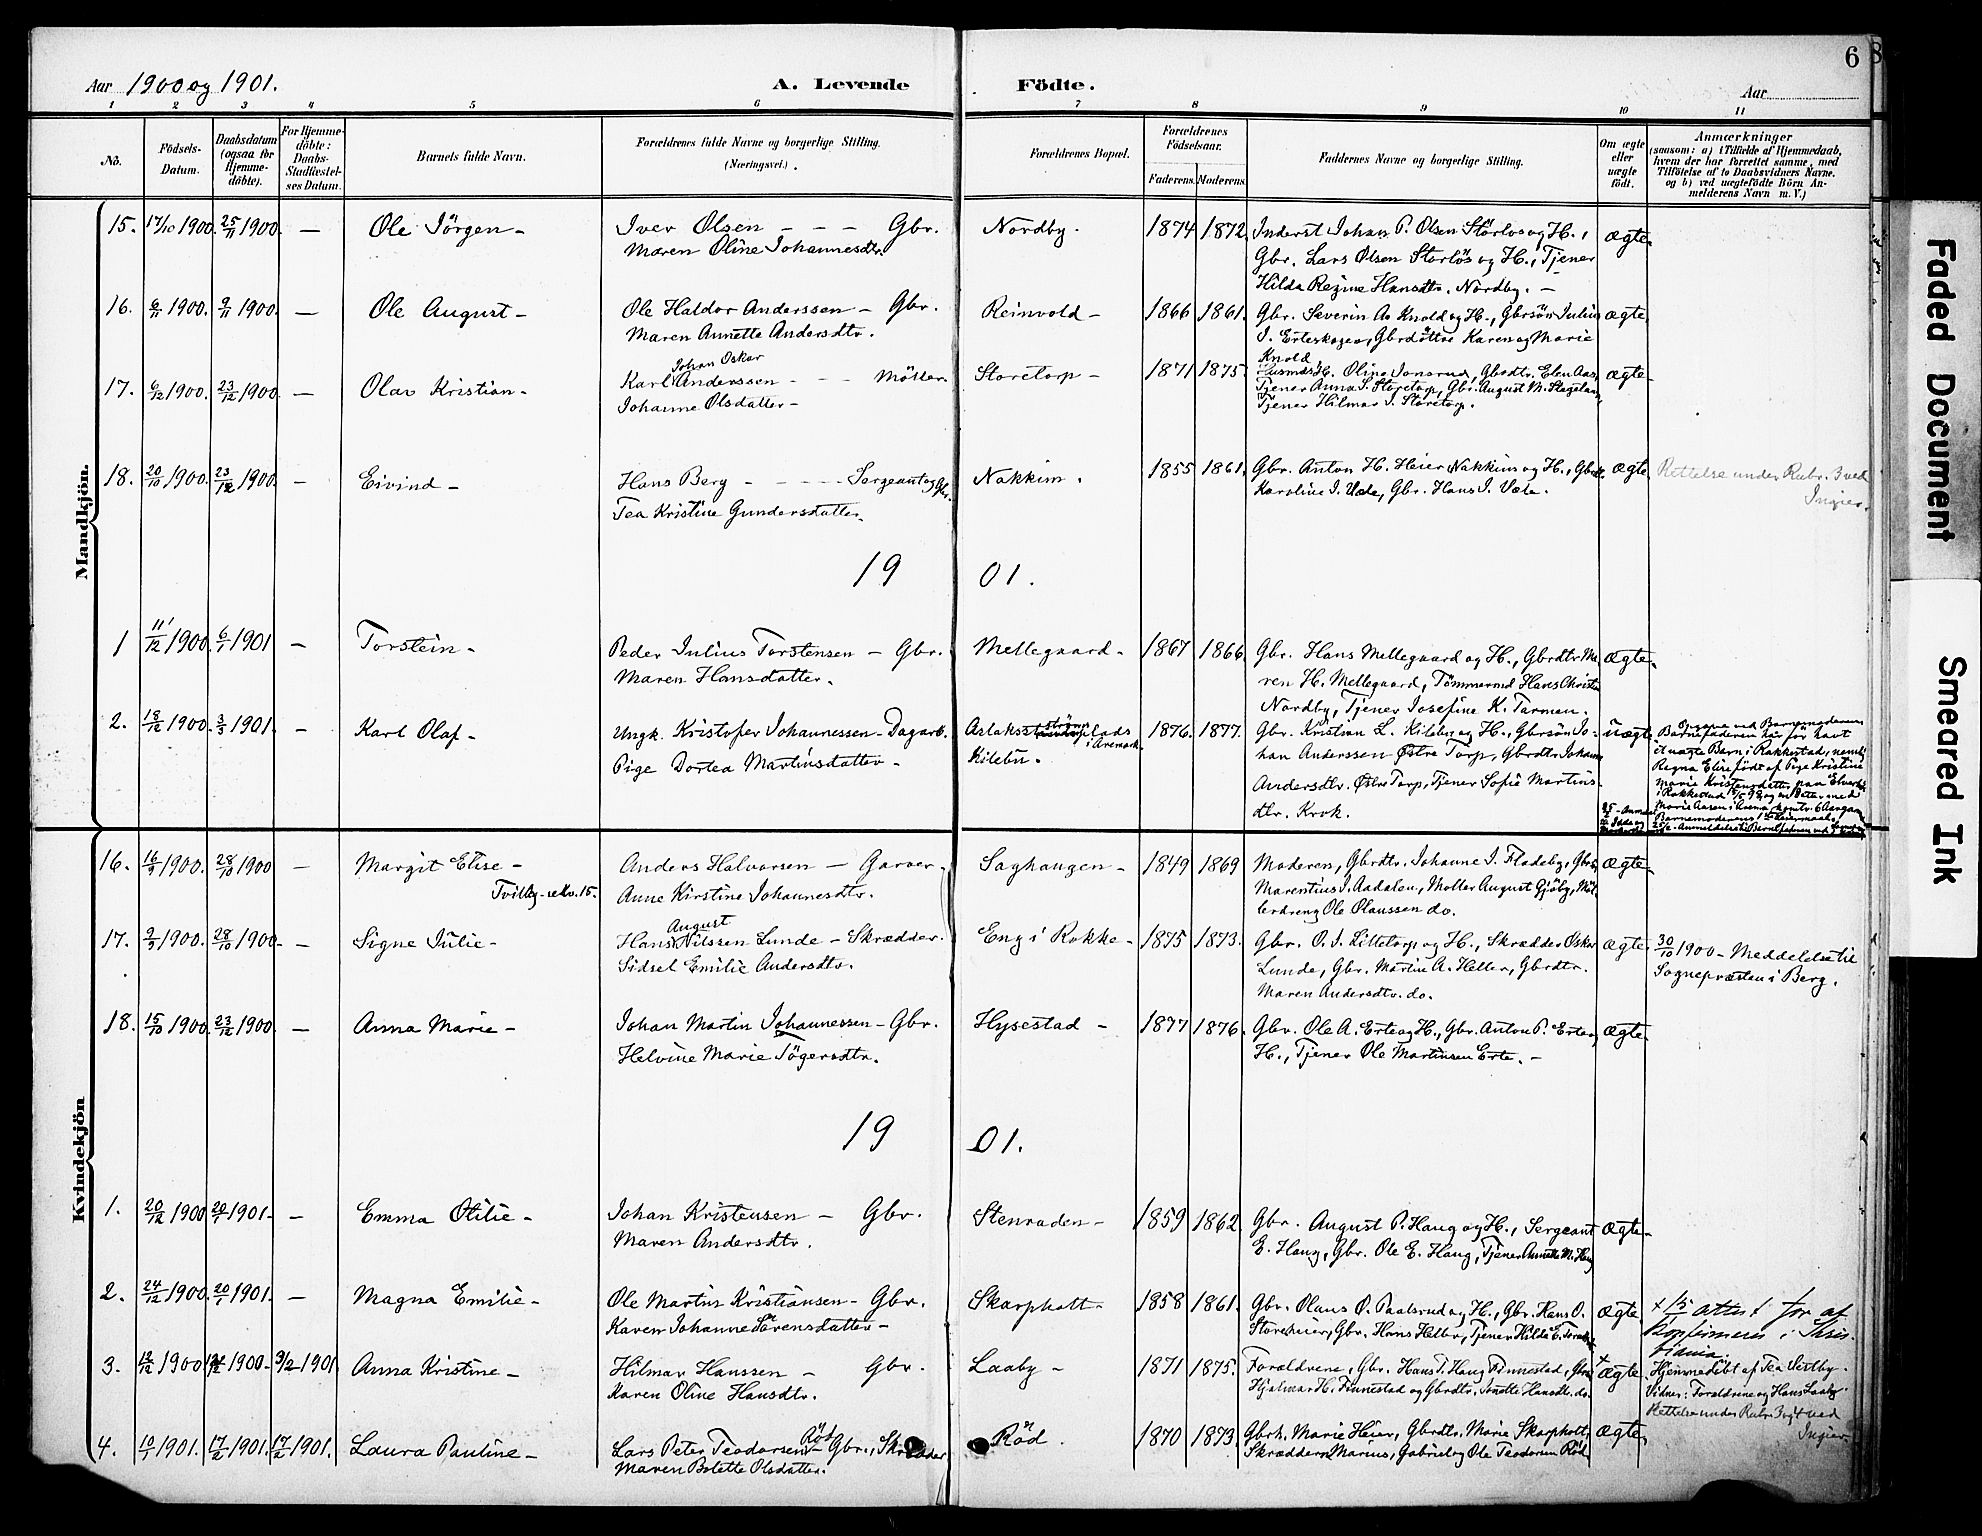 Aar 1900 og 1901.
A. Levende Födte.
Aar
6
1 2 3 4 5 6 7 8 9 10 11
No.
Födsels-
Datum.
Daabsdatum
(ogsaa for
Hjemme-
döbte).
For Hjemme-
döbte:
Daabs-
Stadfæstel-
ses Datum.
Barnets fulde Navn.
Forældrenes fulde Navne og borgerlige Stilling.
(Næringsvei.)
Forældrenes Bopæl.
Forældrenes
Födselsaar.
Faderens. Moderens.
Faddernes Navne og borgerlige Stilling.
Om ægte
eller
uægte
födt.
Anmærkninger
(saasom: a) i Tilfælde af Hjemmedaab,
hvem der har forrettet samme, med
Tilföielse af to Daabsvidners Navne,
og b) ved uægtefödte Börn An-
melderens Navn m. V.)
Mandkjön.
15. 17/10 1900. 25/11 1900. — Ole Jörgen — Iver Olsen — Gbr. Nordby. 1874 1872. Inderst Johan P. Olsen Störlos og H., ægte.
Maren Oline Johannesdtr. Gbr. Lars Olsen Storlös og H., Tjener
Hilda Regine Hansdtr. Nordby. —
16. 6/11 1900. 9/11 1900. — Ole August — Ole Haldor Anderssen — Gbr. Reinvold — 1866 1861. Gbr. Severin A. Knold og H., Gbrsön Julius ægte.
Maren Annette Andersdtr. J. Erteskogen, Gbrdöttre Karen og Marie
Knold
Johan Oskar
17. 6/12 1900. 23/12 1900. — Olav Kristian — Karl Anderssen — Möller. Storetorp — 1871 1875. Husmds H. Oline Sonsrud, Gbrdtr. Elen Aas, ægte —
Johanne Olsdatter — Tjener Anna S. Storetorp, Gbr. August M. Stegelan,
Tjener Hilmar J. Storetorp.
18. 20/10 1900. 23/12 1900. — Eivind — Hans Berg — Sergeant og Gbr. Nakkim. 1855 1861. Gbr. Anton H. Heier Nakkim og H., ægte. Rettelse under Rubr. 3 ved
Tea Kristine Gundersdatter. Karoline J. Væle, Gbr. Hans J. Væle. Ingier.
19 01.
1 11/12 1900. 6/1 1901 — Torstein — Peder Julius Torstensen — Gbr. Mellegaard — 1867 1866. Gbr. Hans Mellegaard og H., Gbrdtr. Ma- ægte.
Maren Hansdatter. ren H. Mellegaard, Tömmermd Hans Christia
Nordby, Tjener Josefine K. Tarmen.
2. 18/12 1900. 3/3 1901. — Karl Olaf — Ungk. Kristofer Johannessen — Dagarb. Aslaks
i Aremark 1876. 1877. Gbr. Kristian L. Kilebu og H., Gbrsön Jo- uægte
Pige Dortea Martinsdatter — Kilebu. han Anderssen Östre Torp, Gbrdtr. Johanne
Andersdtr. Östre Torp, Tjener Sofie Martins-
dtr. Krok.
Opgave ved Barnemoderen
Barnefaderen har för havt
et uægte Barn i Rakkestad, nemlig
Regna Elise födt af Pige Kristine
Marie Kristensdatter
Kvindekjön
16. 16/9 1900. 28/10 1900 — Margit Elise — Anders Halvorsen — Garver. Saghaugen — 1849 1869 Moderen, Gbrdtr. Johanne J. Fladeby, ægte —
Tvilling — se No. 15. Anne Kirstine Johannesdtr. Marentius J. Aadalen, Möller August Gjölby, Möl-
lerdreng Ole Olaussen do.
August
17. 2/9 1900. 28/10 1900 — — Signe Julie — Hans Nilssen Lunde — Skrædder. Eng i Rokke — 1875 1873. Gbr. O. J. Littetorp og H., Skrædder Oskar ægte. 30/10 1900 — Meddelelse til
Sidsel Emilie Andersdtr. Lunde, Gbr. Martin A. Heller, Gbrdtr. Sognepræsten i Berg.
Maren Andersdtr. do.
18. 15/10 1900. 23/12 1900. — Anna Marie — Johan Martin Johannessen — Gbr. Hysestad — 1877 1876. Gbr. Ole A. Erte og H., Gbr. Anton P. Erte og ægte.
Helvine Marie Tögersdtr. H., Tjener Ole Martinsen Erte. —
19 01.
1. 20/12 1900 20/1 1901. — Emma Otilie — Johan Kristensen — Gbr. Stenraden — 1859 1862. Gbr. August P. Haug og H., Sergeant ægte —
Maren Andersdtr. E. Haug, Gbr. Ole E. Haug, Tjener Annette M. Haug
2. 24/12 1900. 20/1 1901. — Magna Emilie — Ole Martin Kristiansen — Gbr. Skarpholt — 1858 1861. Gbr. Olaus O. Paalsrud og H., Gbr. Hans O. ægte
Karen Johanne Sörensdatter — Storeheier, Gbr. Hans Heller, Tjener Hilda E.
3. 12/12 1900 1900 — 3/2 1901. Anna Kristine — Hilmar Hanssen — Gbr. Laaby — 1871 1875. Forældrene, Gbr. Hans T. Haug Finnestad, + ægte. Hjemmedöbt af Tea Sertby.
Karen Oline Hansdtr. Hjalmar H. Finnestad og Gbrdtr. Anette Hansdtr. do. Vidner: Forældrene og Hans Laaby.
Rettelse under Rubr. 3 og 4 ved
Ingier.
4. 10/1 1901. 17/2 1901. 17/2 1901. Laura Pauline — Lars Peter Teodorsen Röd — Gbr., Skrædder Röd. 1870 1873. Gbrk. Marie Heier, Gbrdtr. Marie Skarpholt, ægte.
Maren Botette Olsdatter. Skræddere Marius, Gabriel og Ole Teodorsen Röd
Faded Document
Smeared Ink